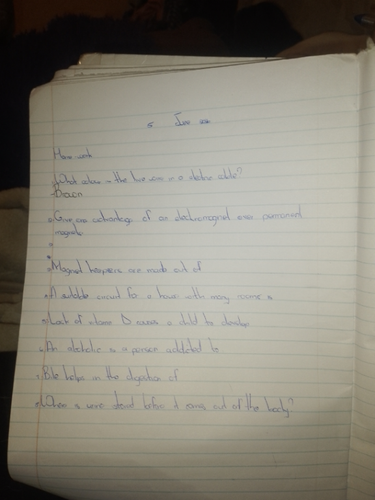 5 June
Home work
1 What colour is the live wire in a electric cable?
Brown
2 Give one advantage of an electromagnet over permanent
magnets
3 Magnet keepers are made out of
4 A suitable circuit for a house with many rooms is
5 Lack of vitamin D causes a child to develop
6 An alcoholic is a person addicted to
7 Bile helps in the digestion of
8 Where is urine stored before it comes out of the body?